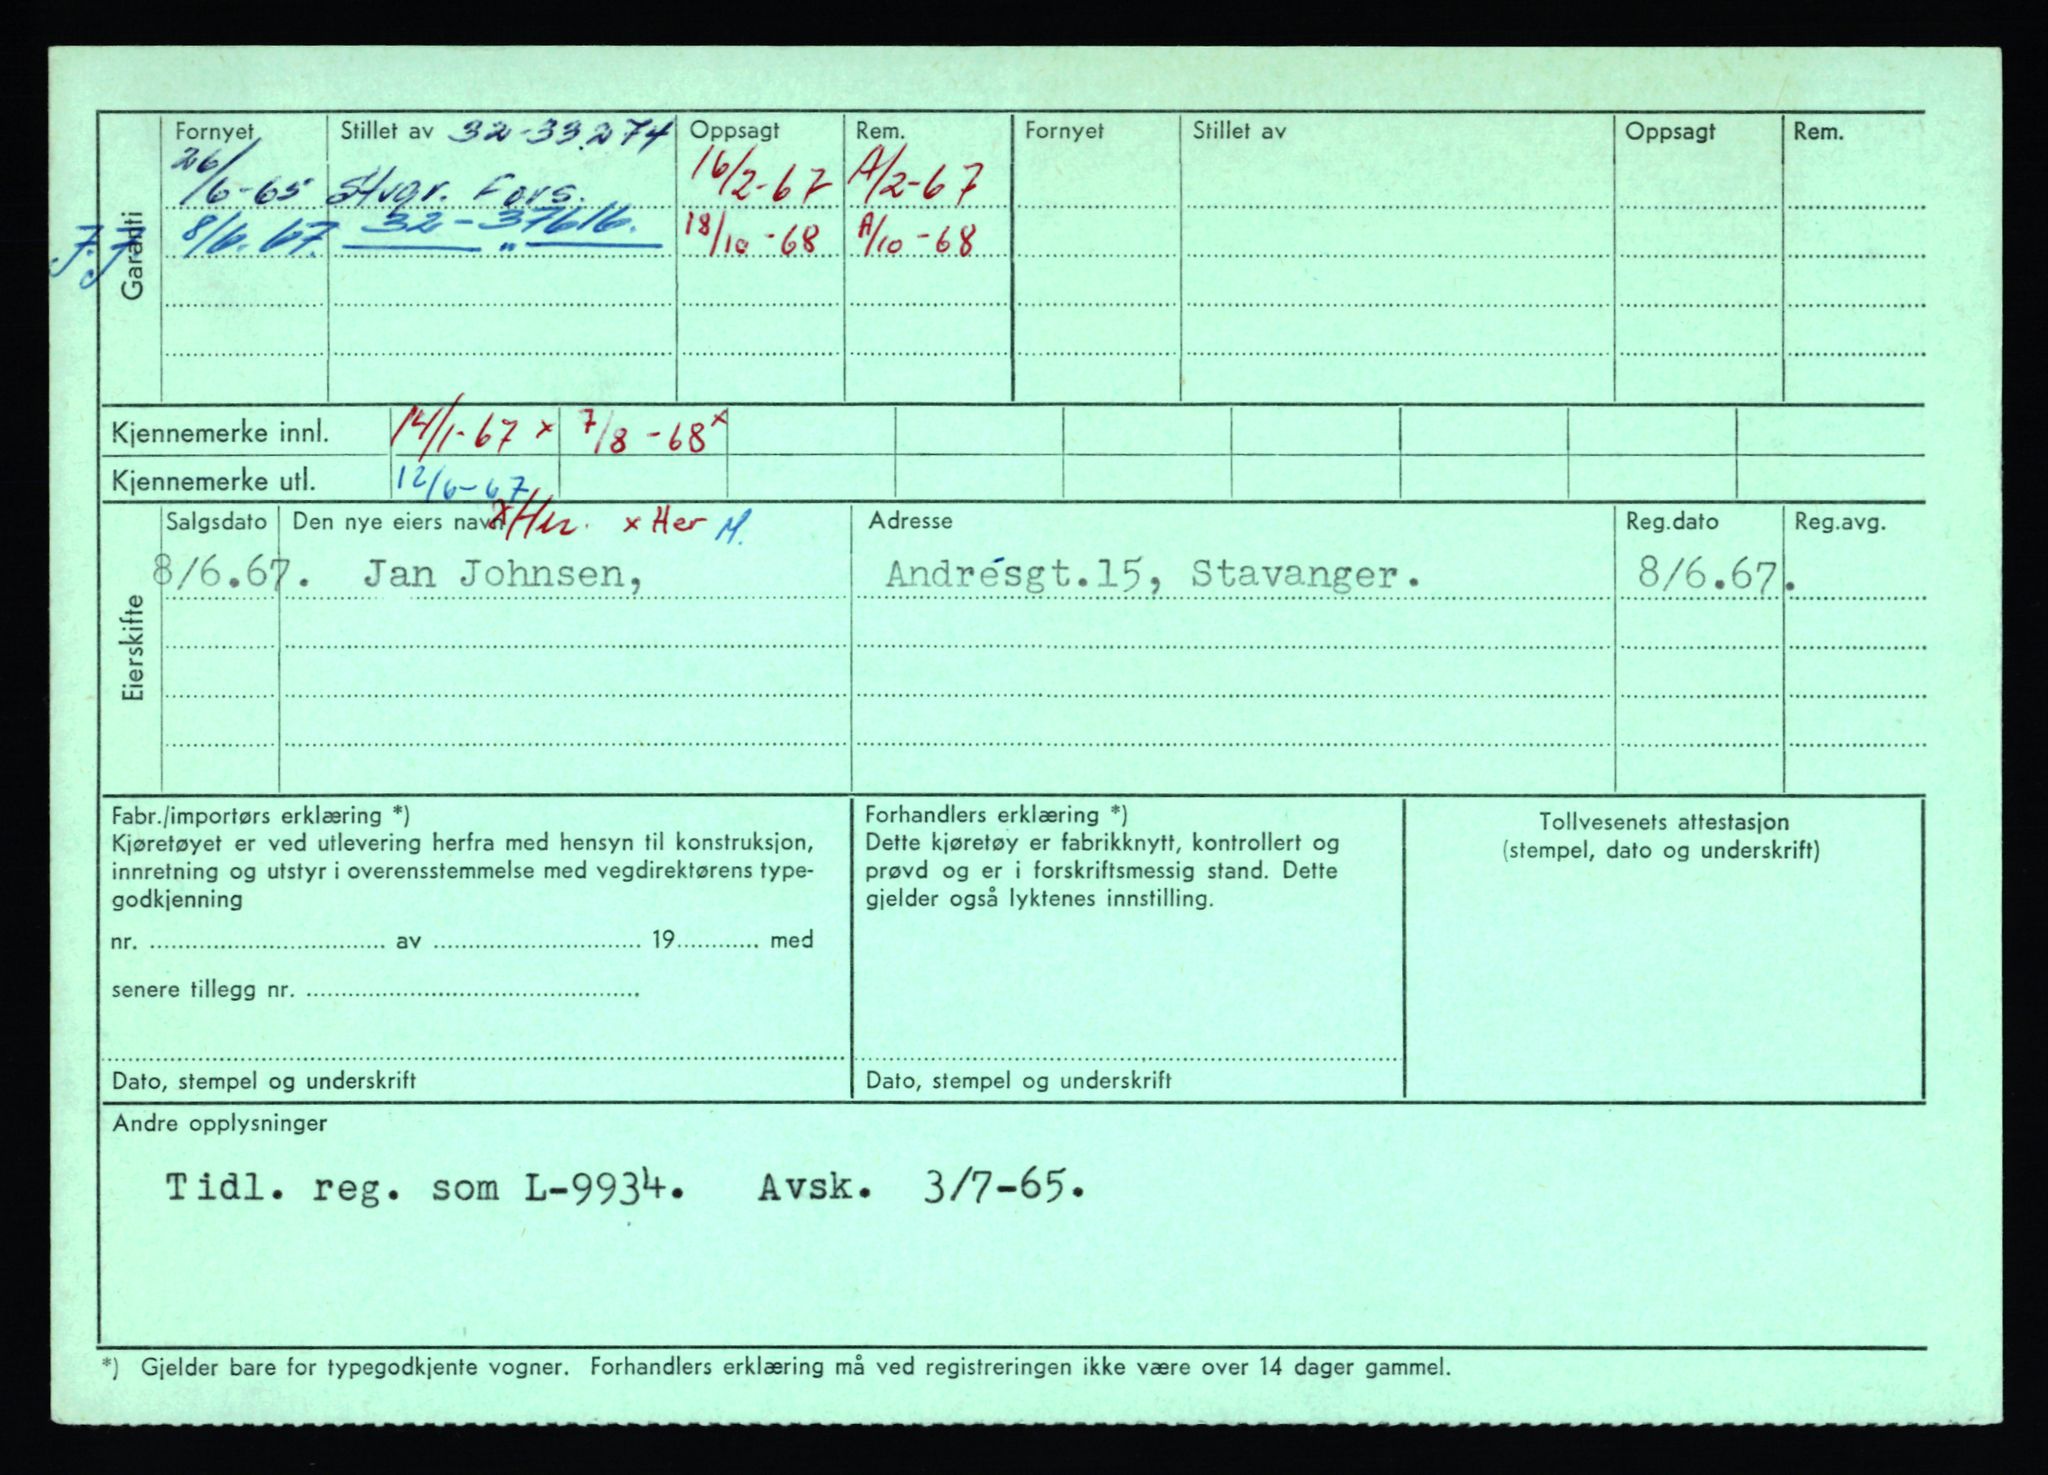 Fornyet Stillet av 32-33.274 Oppsagt Rem. Fornyet Stillet av Oppsagt Rem.
26/6-65 Stvgr. Fors. 16/2-67 A/2-67
J.J. 8/6.67. 32-37616. 18/10-68 A/10-68
"
Garanti
Kjennemerke innl. 14/1-67 x 7/8-68 x
Kjennemerke utl. 12/6-67
Salgsdato Den nye eiers navn x Her. x Her M. Adresse Reg.dato Reg.avg.
8/6.67. Jan Johnsen, Andrésgt.15, Stavanger. 8/6.67.
Eierskifte
Fabr./importørs erklæring *)
Kjøretøyet er ved utlevering herfra med hensyn til konstruksjon,
innretning og utstyr i overensstemmelse med vegdirektørens type-
godkjenning
nr. .................. av .................. 19............ med
senere tillegg nr. ..................
Dato, stempel og underskrift
Forhandlers erklæring *)
Dette kjøretøy er fabrikknytt, kontrollert og
prøvd og er i forskriftsmessig stand. Dette
gjelder også lyktenes innstilling.
Dato, stempel og underskrift
Tollvesenets attestasjon
(stempel, dato og underskrift)
Andre opplysninger
Tidl. reg. som L-9934. Avsk. 3/7-65.
*) Gjelder bare for typegodkjente vogner. Forhandlers erklæring må ved registreringen ikke være over 14 dager gammel.